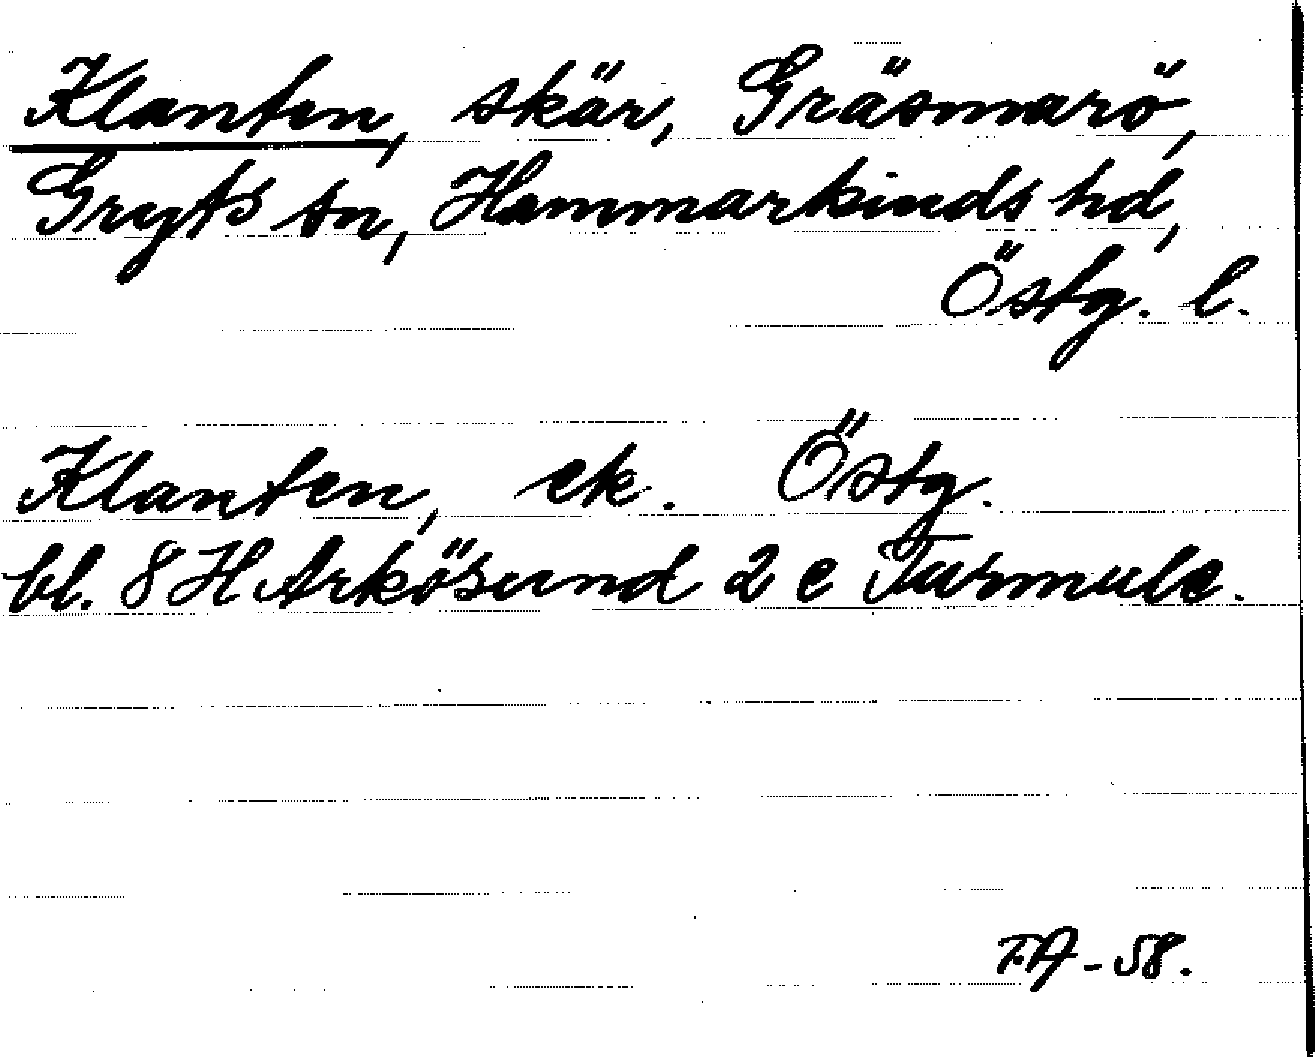 Klanten, skär, Gräsmarö,
Gryts sn, Hammarkinds hd,
Östg. l.
Klanten, ek. Östg.
bl. 8 H Arkösund 2 e Turmule.
FA-58.